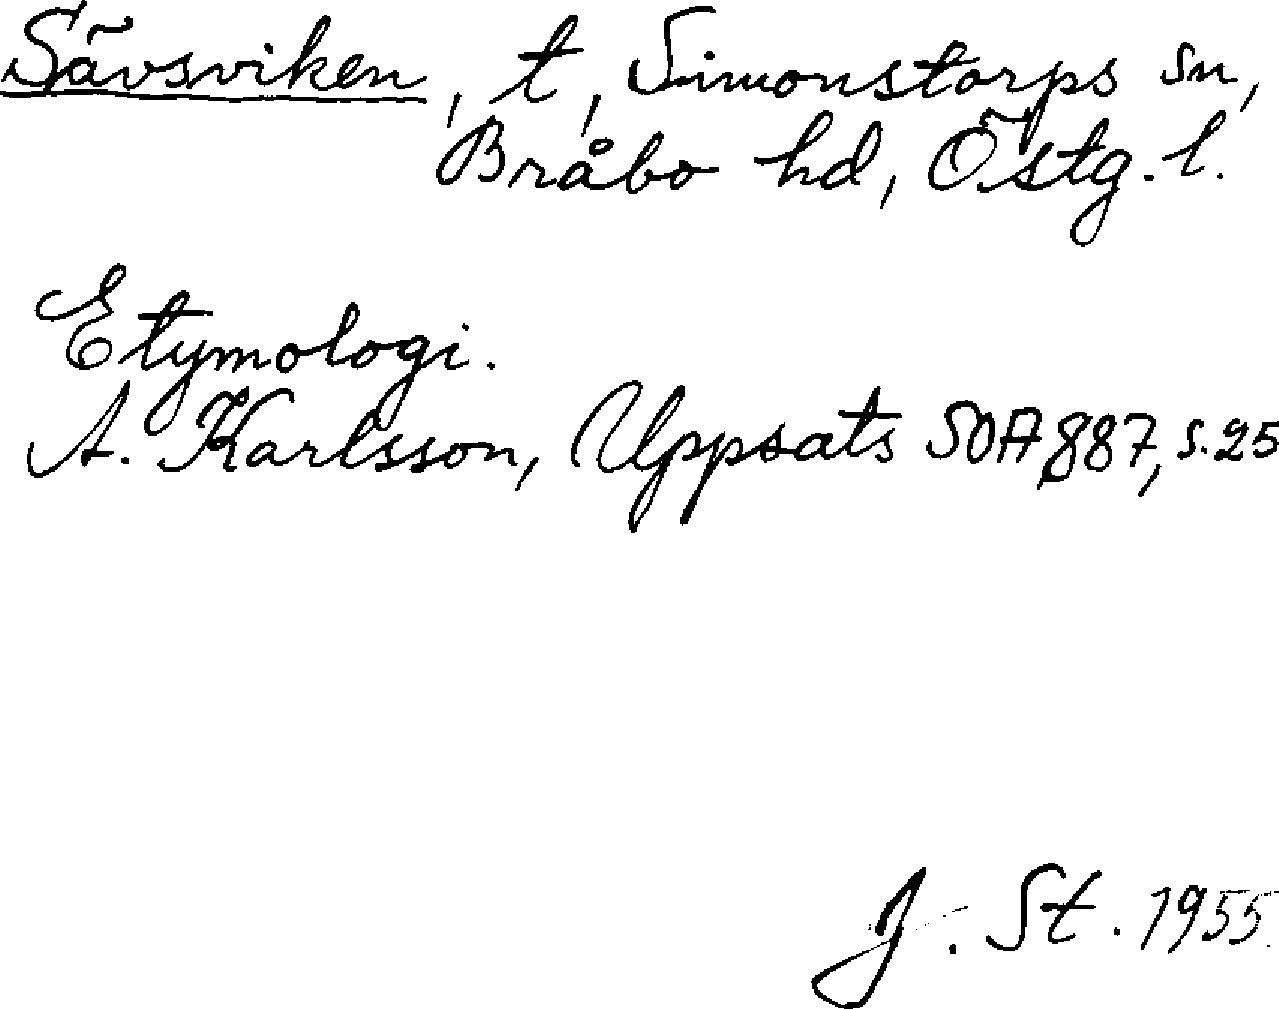 Sävsviken, t, Simonstorps sn,
Bråbo hd, Östg. l.
Etymologi.
A. Karlsson, Uppsats SOA 887, s. 25
J. St. 1955.